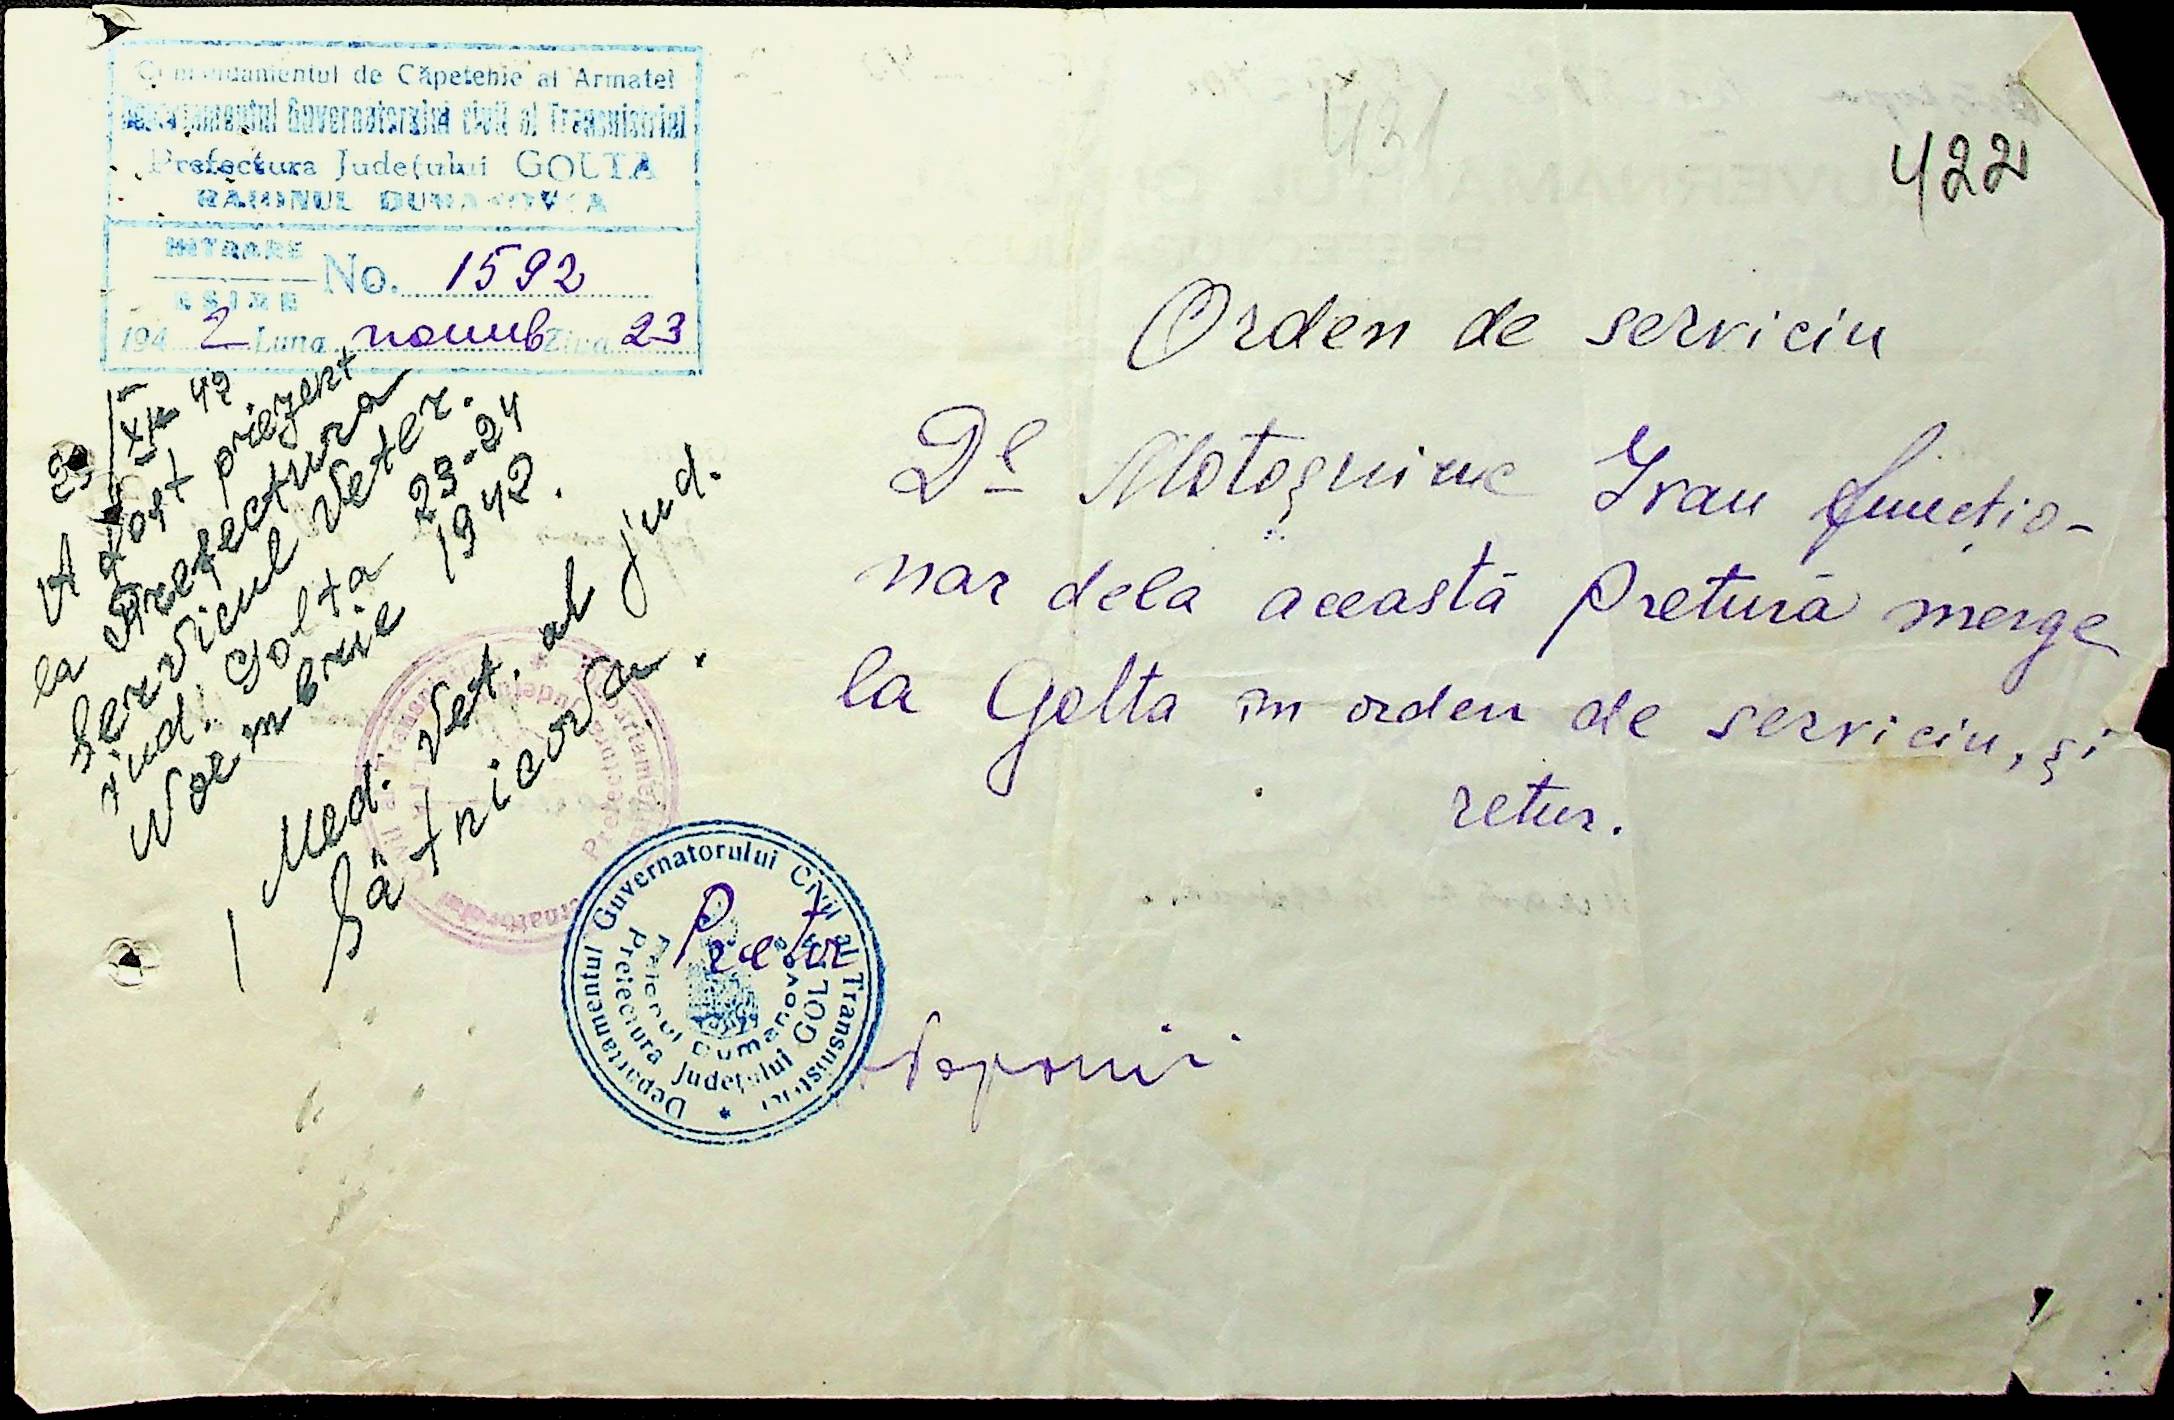 Comandamentul de Căpetenie al Armatei
Departamentul Guvernatorului civil al Transnistriei
Prefectura Județului GOLTA
RAIONUL DUMANOVCA
INTRARE
No. 1592
EȘIRE
194 2 Luna noemb Ziua 23
421
422
Orden de serviciu
Dl Ivan functio-
nar dela această Pretură merge
la Golta în orden de serviciu, și
retur.
Pretor
23/XI 42
A fost prezent
la Prefectura
Serviciul Veter.
jud. Golta 23-24
Noembrie 1942.
Med. Vet. al jud.
Departamentul Guvernatorului Civil al Transnistriei
Prefectura Județului GOLTA
Raionul Dumanovca